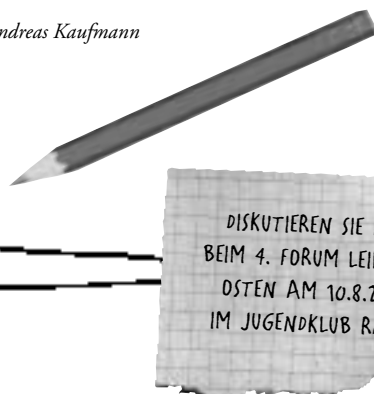 ndreas Kaufmann
DISKUTIEREN SIE
BEIM 4. FORUM LEI
OSTEN AM 10.8.2
IM JUGENDKLUB RA